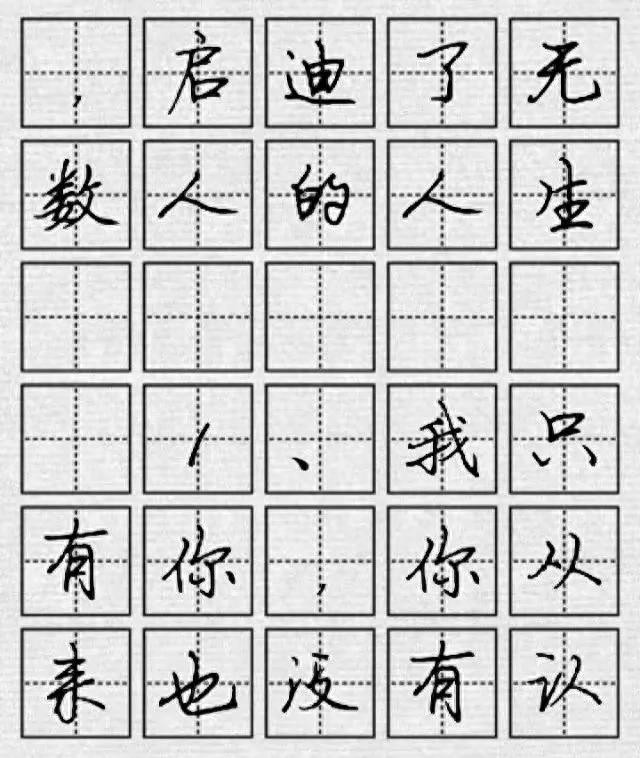 ，启迪了无
数人的人生
1、我只
有你，你从
来也没有认